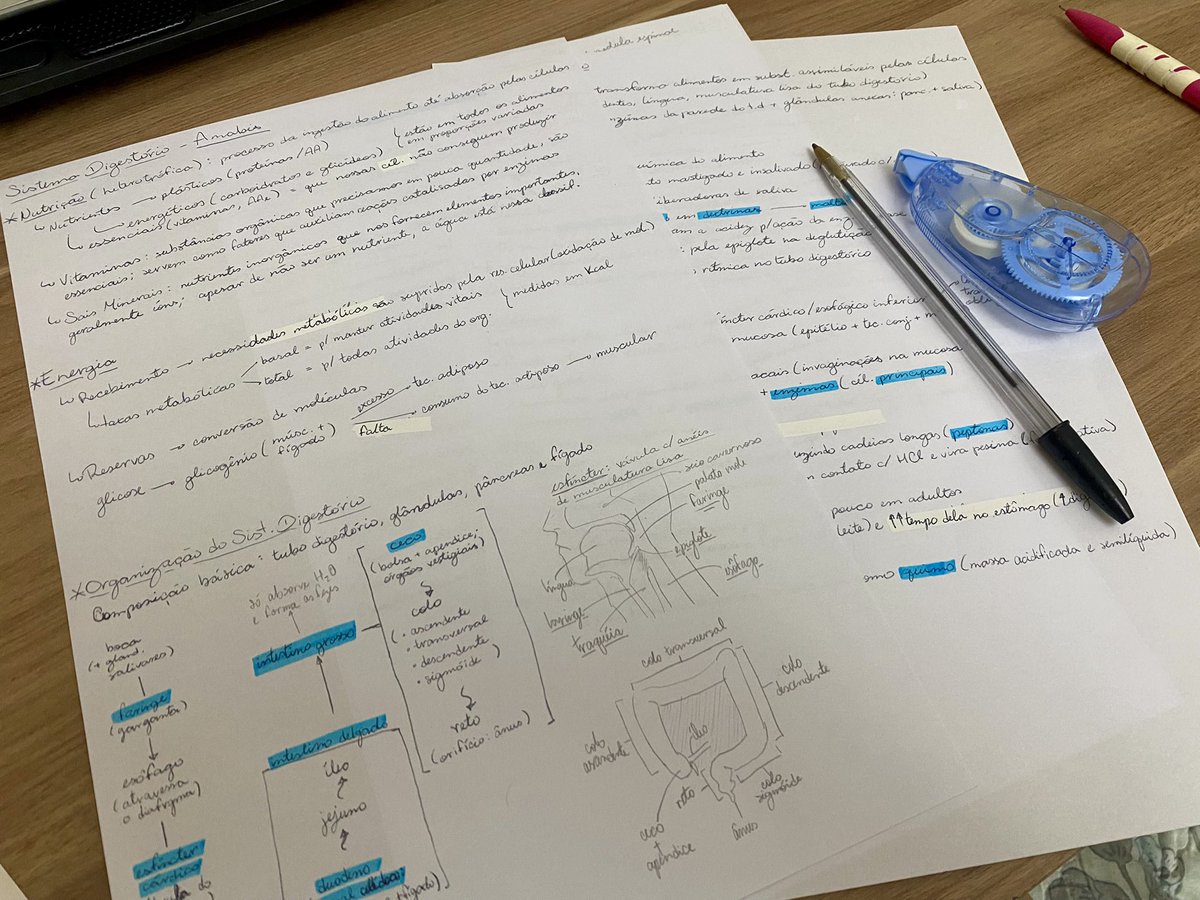 Sistema Digestório - Anabis
* Nutrição (heterotrófica): processo da ingestão do alimento até absorção pelas células
↳ Nutrientes → plásticos (proteínas/AA) { estão em todos os alimentos
↳ energéticos (carboidratos e glicídeos) { em proporções variadas
↳ essenciais (vitaminas, AAs) = que nossas cél. não conseguem produzir
↳ Vitaminas: substâncias orgânicas que precisamos em pouca quantidade, são
essenciais; servem como fatores que auxiliam reações catalisadas por enzimas
↳ Sais Minerais: nutrientes inorgânicos que nos fornecem elementos importantes,
geralmente íons; apesar de não ser um nutriente, a água está nessa
* Energia
↳ Recebimento → necessidades metabólicas são supridas pela res. celular (oxidação de mol)
↳ taxas metabólicas basal = p/ manter atividades vitais
total = p/ todas atividades do org. { medidas em Kcal
↳ Reservas → conversão de moléculas excesso → tec. adiposo
glicose → glicogênio (músc. + fígado) falta → consumo do tec. adiposo → muscular
* Organização do Sist. Digestório
Composição básica: tubo digestório, glândulas, pâncreas e fígado
boca
(+ gland.
salivares)
faringe
(garganta)
esôfago
(atravessa
o diafrgma)
esfíncter
cárdico
só absorve H2O
e forma as fezes
intestino grosso
intestino delgado
íleo
jejuno
duodeno
ceco
(bolsa + apendice;
órgãos vestigiais)
colo
(• ascendente
• transversal
• descendente
• sigmóide)
reto
(orifício: ânus)
esfíncter: válvula c/ anéis
de musculatura lisa
seio cavernoso
palato mole
faringe
epiglote
esôfago
língua
laringe
traquéia
colo transversal
colo
descendente
colo
ascendente
íleo
reto
colo
sigmóide
ceco
+
apêndice
ânus
medula espinal
transforma alimentos em subst. assimiláveis pelas células
dentes, língua, musculatura lisa do tubo digestório)
nzimas da parede do t.d + glândulas anexas: panc. + saliva)
química do alimento
to mastigado e insalivado
liberadoras de saliva
em dextrinas →
am a acidez p/ ação da enz
pela epiglote na deglutição
rítmica no tubo digestório
íncter cárdico/esofágico inferior
mucosa (epitélio + tec. conj +
acais (invaginações na mucosa
+ enzimas (cél. principais)
uzindo cadeias longas (peptonas)
n contato c/ HCl e vira pesina
pouco em adultos
leite) e ↑↑ tempo dela no estômago
smo quimo (massa acidificada e semilíquida)